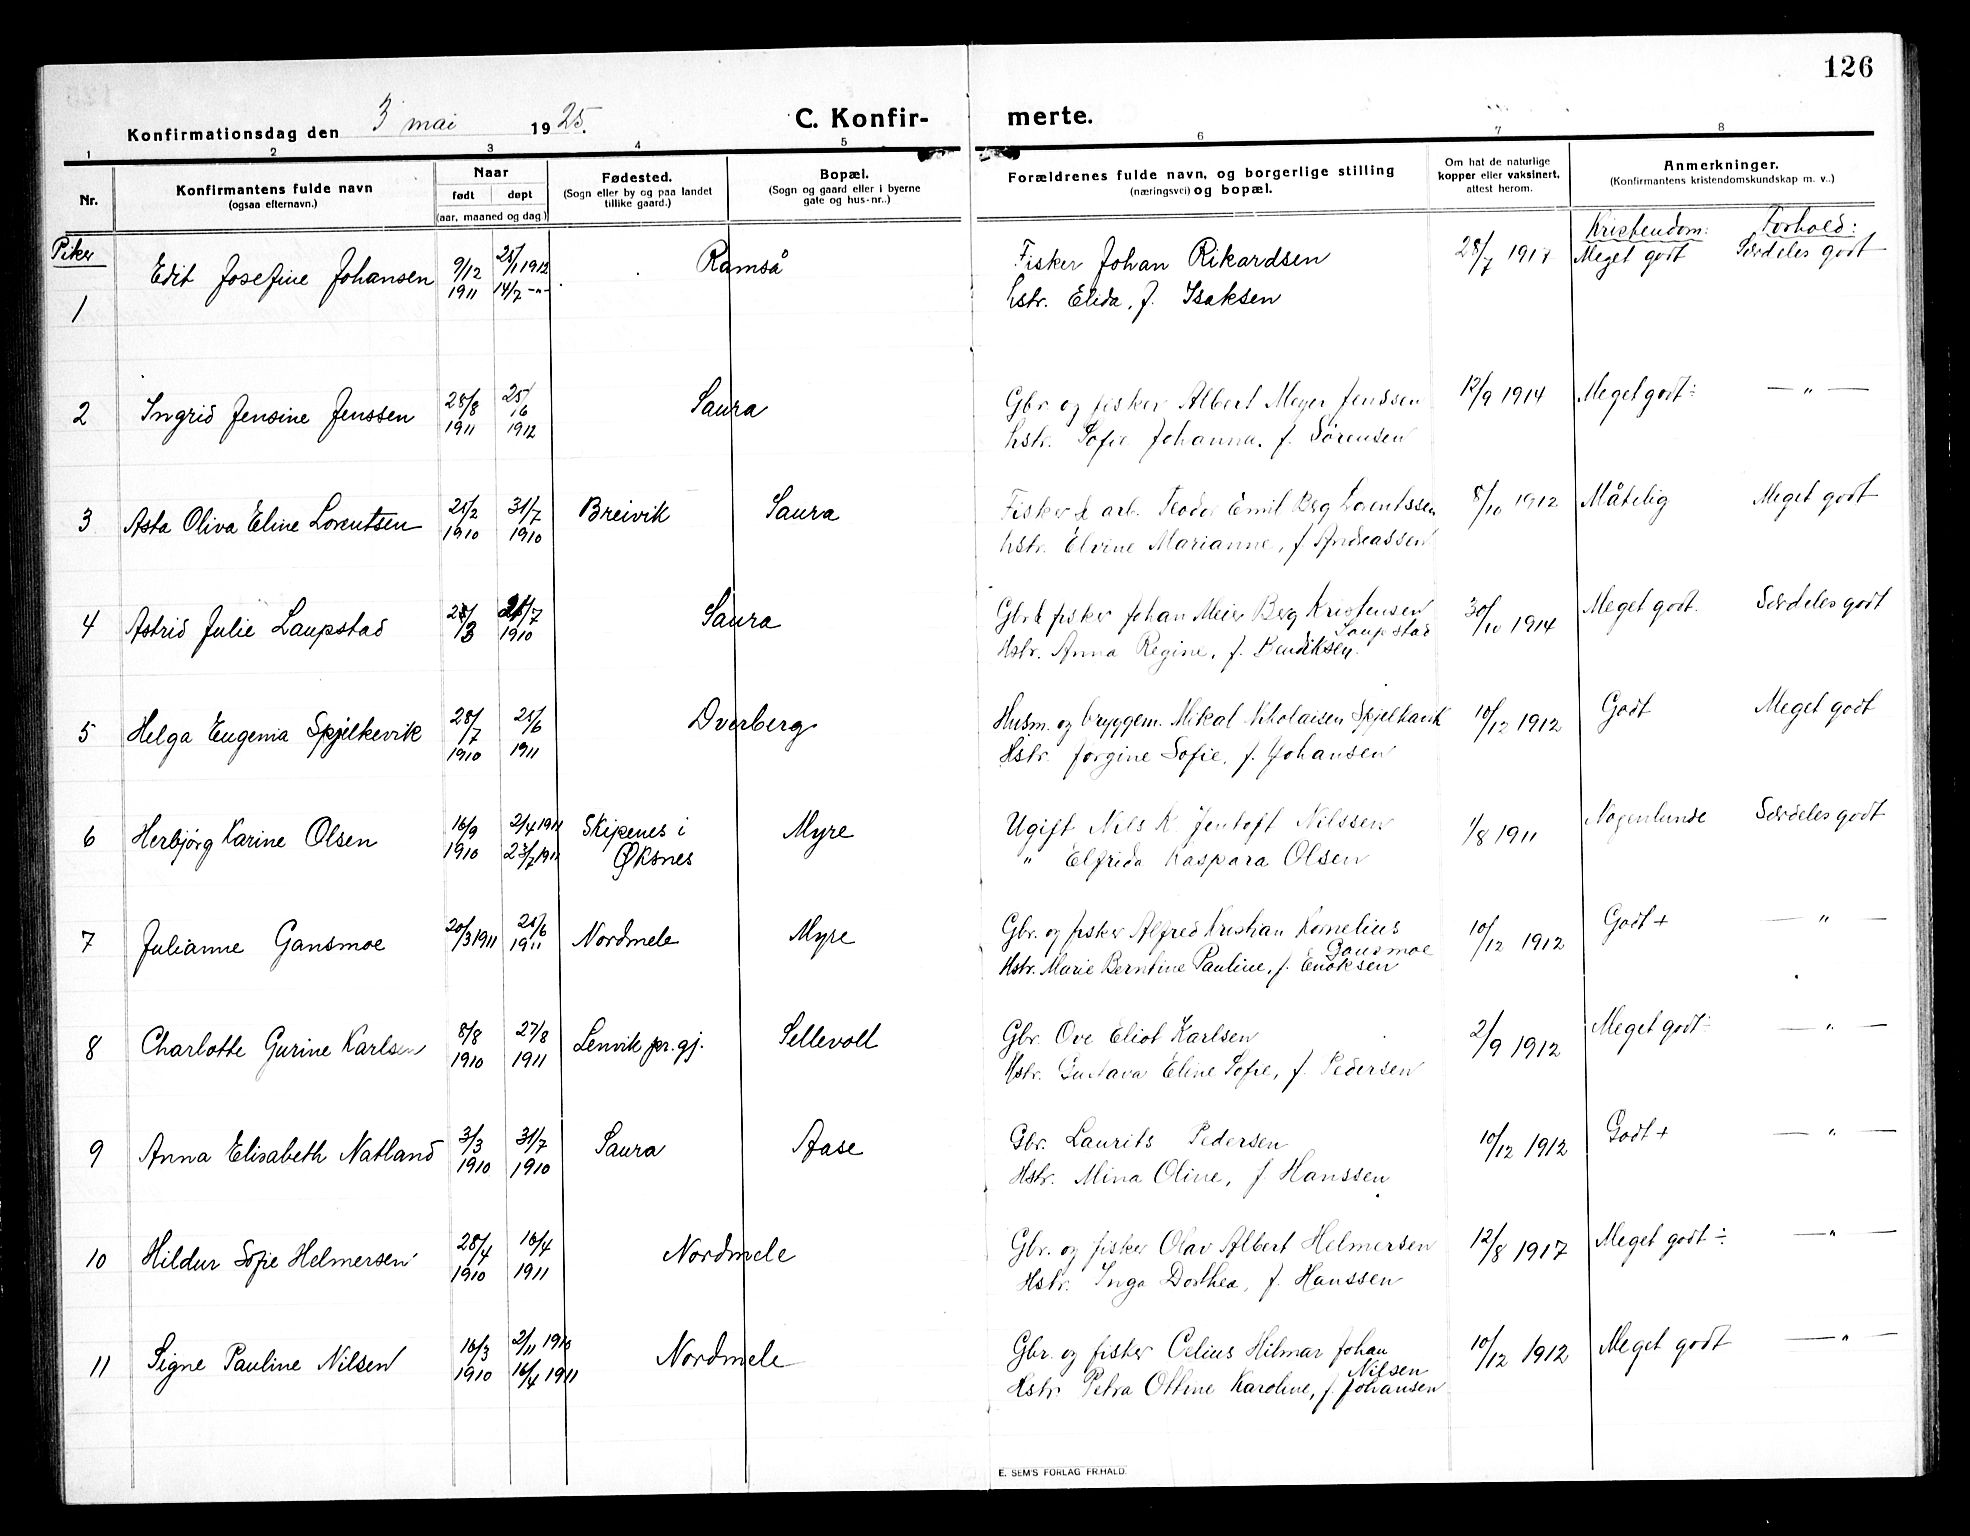 126
Konfirmationsdag den 3 mai 1925.
C. Konfirmerte.
1 2 3 4 5 6 7 8
Nr.
Konfirmantens fulde navn
(ogsaa efternavn.)
Naar
født døpt
(aar, maaned og dag.)
Fødested.
(Sogn eller by og paa landet
tillike gaard.)
Bopæl.
(Sogn og gaard eller i byerne
gate og hus-nr..)
Forældrenes fulde navn, og borgerlige stilling
(næringsvei) og bopæl.
Om hat de naturlige
kopper eller vaksinert,
attest herom.
Anmerkninger.
(Konfirmantens kristendomskundskap m. v..)
Piker
Kristendom: Forhold:
1 Edit Josefine Johansen 9/12 1911 25/1 1912 14/7 -"- Ramså
Fisker Johan Rikardsen 28/7 1917 Meget godt Særdeles godt
hstr. Elida, f. Isaksen
2 Ingrid Jensine Jenssen 28/8 1911 25/16 1912 Saura
Gbr. og fisker Albert Meyer Jenssen 12/9 1914 Meget godt ÷ — " —
hstr. Sofie Johanna, f. Sørensen
3 Asta Oliva Eline Lorentsen 1910 31/7 1910 Breivik Saura
Fisker & arb. Teodor Emil Berg Lorentssen 8/10 1912 Måtelig Meget godt
hstr. Elvine Marianne, f. Andreassen
4 Astrid Julie Laupstad 1910 Saura
Gbr. & fisker Johan Meier Berg Kristensen 30/10 1914 Meget godt. Særdeles godt
Laupstad
Hstr. Anna Regine, f. Hendriksen.
5 Helga Eugenia Spjelkevik 28/7 1910 25/6 1911 Dverberg
Husm. og byggem. Mikal Nikolaisen Spjelkavik 10/12 1912 Godt Meget godt
Hstr. Jorgine Sofie, f. Johansen
6 Herbjørg Karine Olsen 16/9 1910 2/4 1911 23/7 1911 Skipenes i Øksnes Myre
Ugift Nils K. Jentoft Nilssen 1/8 1911 Nogenlunde Særdeles godt
" Elfrida Kaspara Olsen
7 Julianne Gansmoe 20/3 1911 25/6 1911 Nordmele Myre
Gbr. og fisker Alfred Kristian Kornelius 10/12 1912 Godt + — " —
Gansmoe
Hstr. Marie Berntine Pauline, f. Enoksen
8 Charlotte Gurine Karlsen 8/8 1910 27/8 1911 Lenvik pr.gj. Sellevoll
Gbr. Ove Eliot Karlsen 2/9 1912 Meget godt ÷ — " —
Hstr. Gustava Eline Sofie, f. Pedersen
9 Anna Elisabeth Natland 3/3 1910 31/7 1910 Saura Aase
Gbr. Laurits Pedersen 10/12 1912 Godt + — " —
Hstr. Mina Oline, f. Hanssen
10 Hildur Sofie Helmersen 28/4 1910 16/4 1911 Nordmele
Gbr. og fisker Olav Albert Helmersen 12/8 1917 Meget godt ÷ — " —
Hstr. Inga Dorthea, f. Hanssen
11 Signe Pauline Nilsen 16/3 1910 2/11 1910 16/4 1911 Nordmele
Gbr. og fisker Celius Hilmar Johan 10/12 1912 Meget godt — " —
Nilsen
Hstr. Petra Ottine Karoline, f. Johansen
E. SEM'S FORLAG FR.HALD.